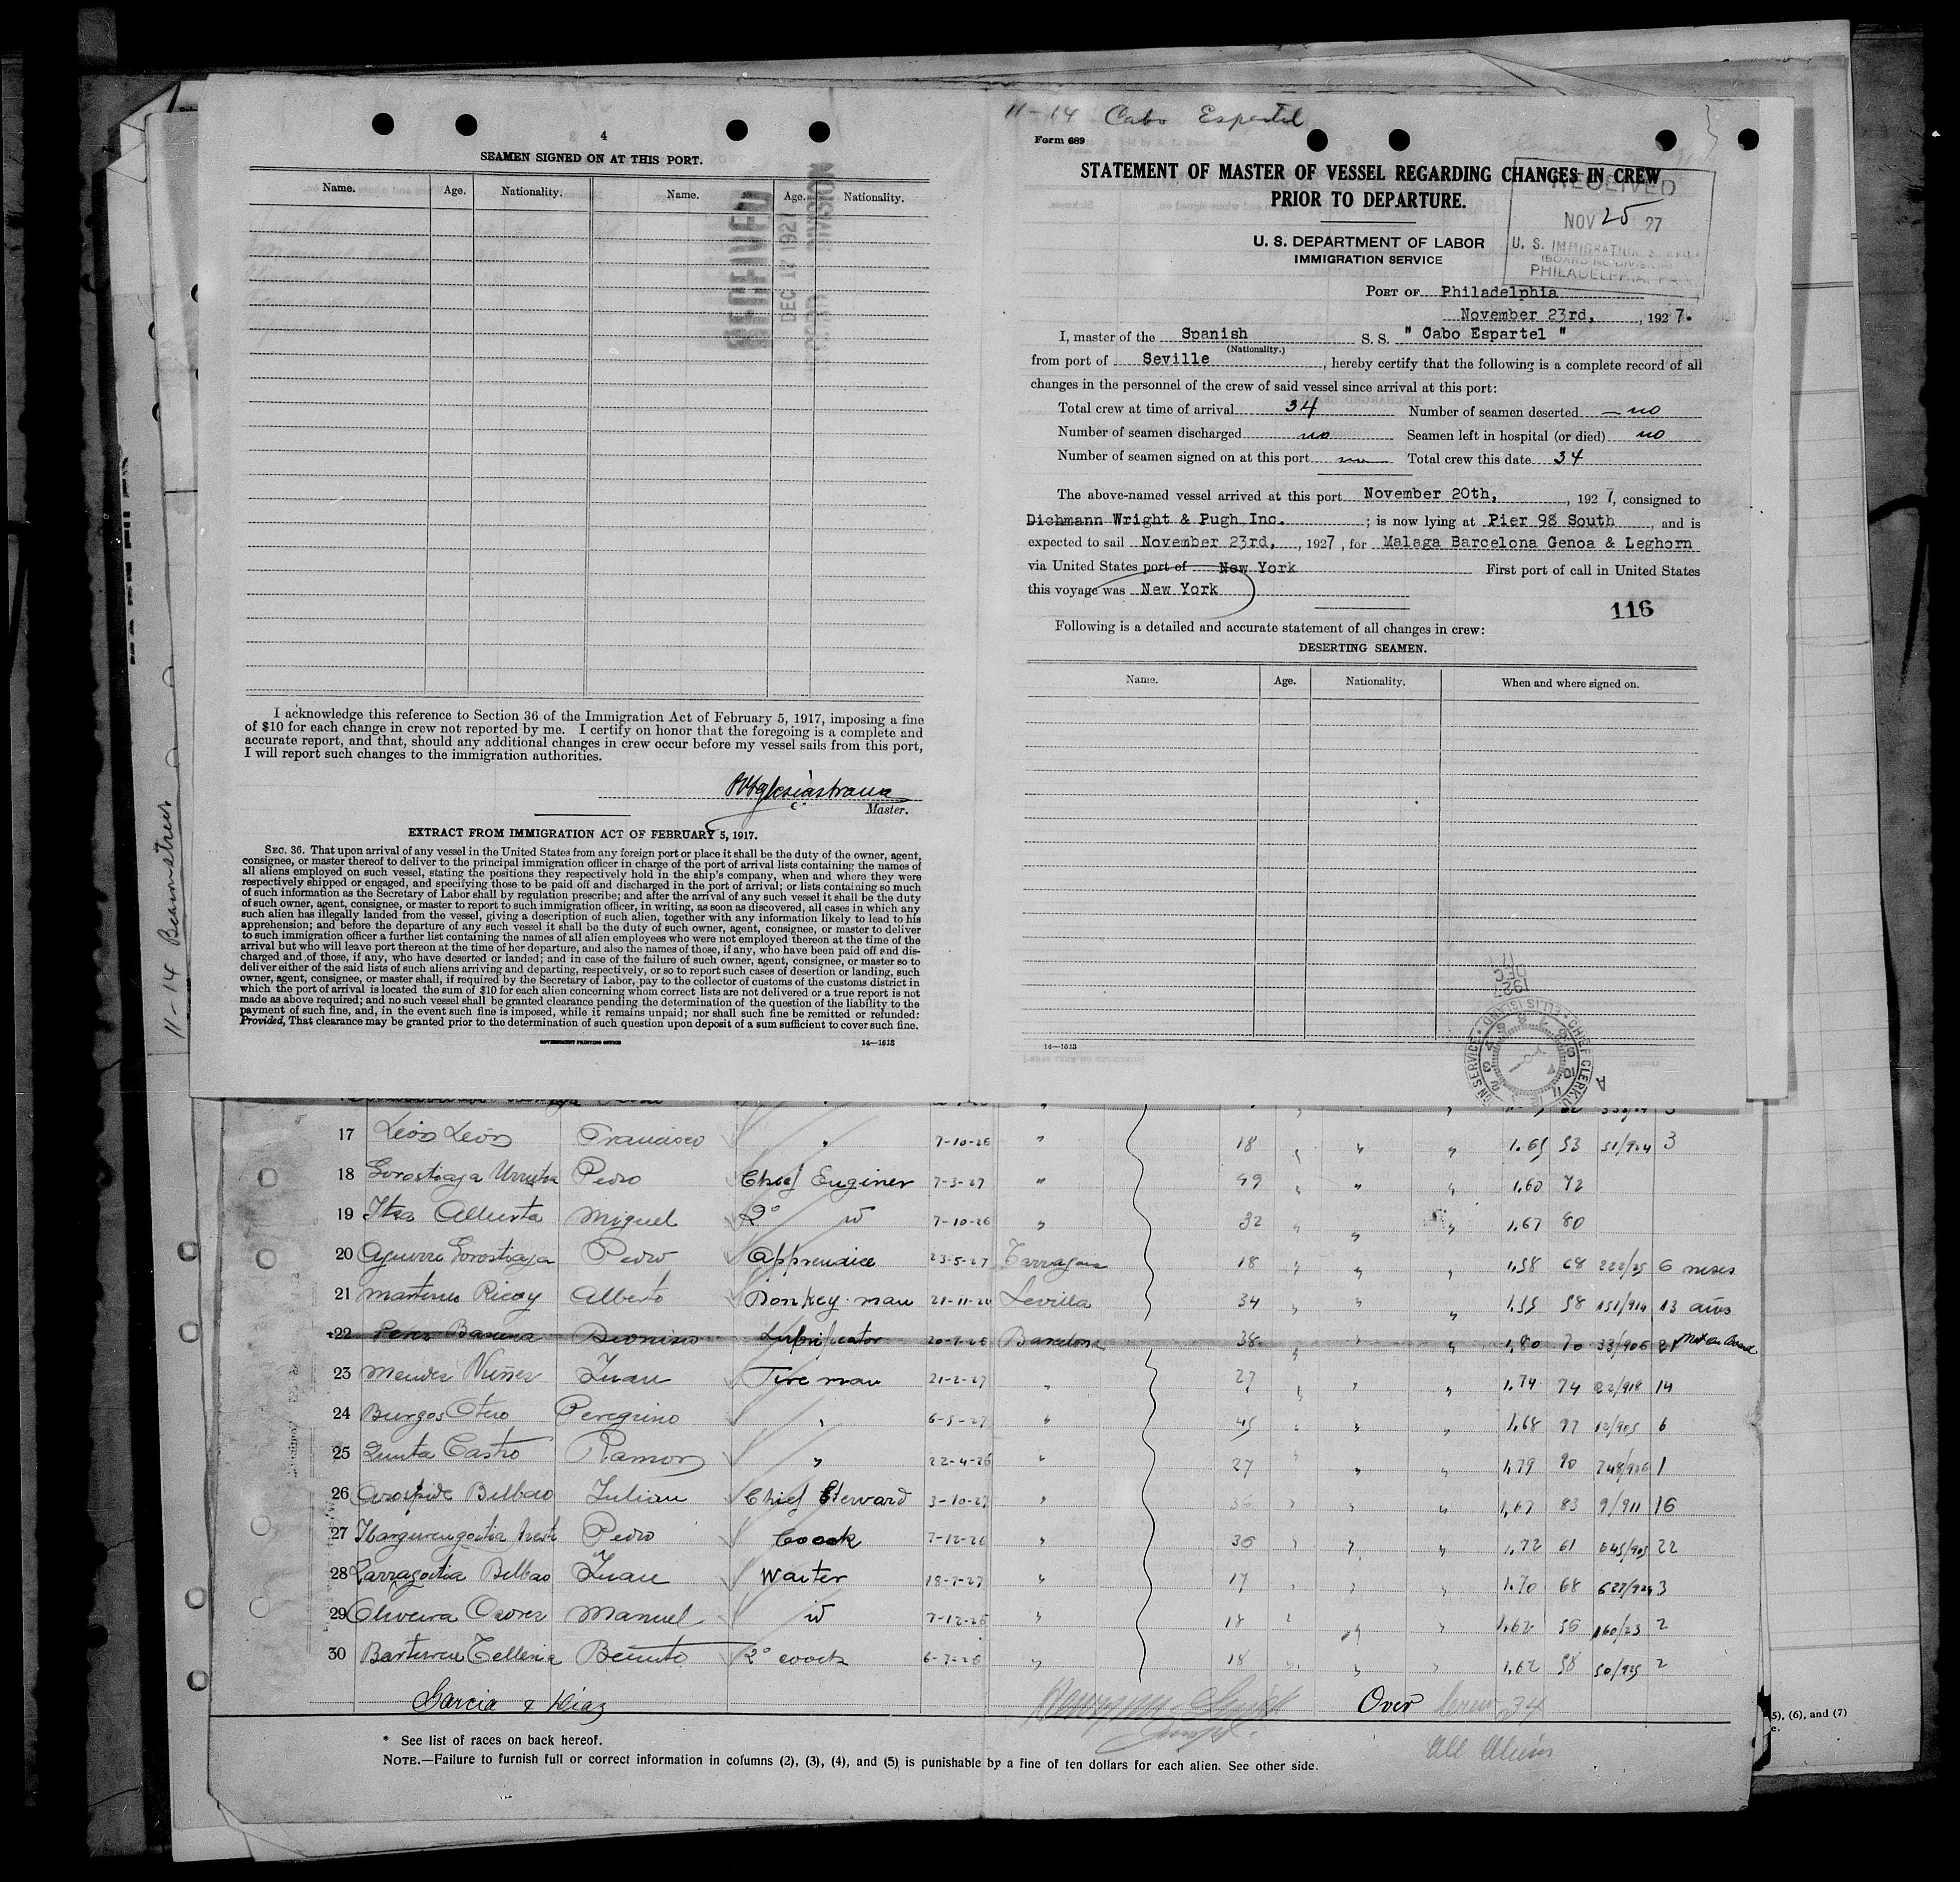 4
SEAMEN SIGNED ON AT THIS PORT.
Name. Age. Nationality. Name. Age. Nationality.
RECEIVED
DEC 12 1927
RECORD DIVISION
I acknowledge this reference to Section 36 of the Immigration Act of February 5, 1917, imposing a fine
of $10 for each change in crew not reported by me. I certify on honor that the foregoing is a complete and
accurate report, and that, should any additional changes in crew occur before my vessel sails from this port,
I will report such changes to the immigration authorities.
Master.
EXTRACT FROM IMMIGRATION ACT OF FEBRUARY 5, 1917.
SEC. 36. That upon arrival of any vessel in the United States from any foreign port or place it shall be the duty of the owner, agent,
consignee, or master thereof to deliver to the principal immigration officer in charge of the port of arrival lists containing the names of
all aliens employed on such vessel, stating the positions they respectively hold in the ship's company, when and where they were
respectively shipped or engaged, and specifying those to be paid off and discharged in the port of arrival; or lists containing so much
of such information as the Secretary of Labor shall by regulation prescribe; and after the arrival of any such vessel it shall be the duty
of such owner, agent, consignee, or master to report to such immigration officer, in writing, as soon as discovered, all cases in which any
such alien has illegally landed from the vessel, giving a description of such alien, together with any information likely to lead to his
apprehension; and before the departure of any such vessel it shall be the duty of such owner, agent, consignee, or master to deliver
to such immigration officer a further list containing the names of all alien employees who were not employed thereon at the time of the
arrival but who will leave port thereon at the time of her departure, and also the names of those, if any, who have been paid off and dis-
charged and of those, if any, who have deserted or landed; and in case of the failure of such owner, agent, consignee, or master so to
deliver either of the said lists of such aliens arriving and departing, respectively, or so to report such cases of desertion or landing, such
owner, agent, consignee, or master shall, if required by the Secretary of Labor, pay to the collector of customs of the customs district in
which the port of arrival is located the sum of $10 for each alien concerning whom correct lists are not delivered or a true report is not
made as above required; and no such vessel shall be granted clearance pending the determination of the question of the liability to the
payment of such fine, and, in the event such fine is imposed, while it remains unpaid; nor shall such fine be remitted or refunded:
Provided, That clearance may be granted prior to the determination of such question upon deposit of a sum sufficient to cover such fine.
GOVERNMENT PRINTING OFFICE 14—1613
11-14 Cabo Espartel
Form 689
STATEMENT OF MASTER OF VESSEL REGARDING CHANGES IN CREW
PRIOR TO DEPARTURE.
RECEIVED
NOV 25 27
U. S. IMMIGRATION SERVICE
PHILADELPHIA, PA.
U. S. DEPARTMENT OF LABOR
IMMIGRATION SERVICE
PORT OF Philadelphia
November 23rd, , 1927.
I, master of the Spanish S. S. " Cabo Espartel "
(Nationality.)
from port of Seville , hereby certify that the following is a complete record of all
changes in the personnel of the crew of said vessel since arrival at this port:
Total crew at time of arrival 34 Number of seamen deserted — no
Number of seamen discharged no Seamen left in hospital (or died) no
Number of seamen signed on at this port no Total crew this date 34
The above-named vessel arrived at this port November 20th, , 1927, consigned to
Dichmann Wright & Pugh Inc. ; is now lying at Pier 98 South , and is
expected to sail November 23rd, , 1927, for Malaga Barcelona Genoa & Leghorn
via United States port of New York First port of call in United States
this voyage was New York
116
Following is a detailed and accurate statement of all changes in crew:
DESERTING SEAMEN.
Name. Age. Nationality. When and where signed on.
14—1613
DEC 1927
CHIEF CLERK
ELLIS ISLAND
17 León León Francisco " 7-10-26 " 18 " " " 1.65 53 51/924 3
18 Gorostiaga Urrutia Pedro Chief Enginer 7-3-27 " 49 " " " 1,60 72
19 Miguel 2° id 7-10-26 " 32 " " " 1,67 80
20 Aguirre Gorostiaga Pedro Apprendice 23-5-27 Tarragona 18 " " " 1,58 68 222/25 6 meses
21 Martinez Ricoy Alberto Donkey-man 21-11-26 Sevilla 34 " " " 1,55 58 151/914 13 años
22 Perez Dionisio Lubrificator 20-7-26 Barcelona 38 " " " 1,80 70 33/906 21 Not on board
23 Mendez Nuñez Juan Fire man 21-2-27 " 27 " " " 1,74 74 22/918 14
24 Burgos Otero Peregrino " 6-5-27 " 45 " " " 1,68 77 12/905 6
25 Castro Ramon " 22-4-26 " 27 " " " 1,79 90 248/926 1
26 Bilbao Julian Chief Steward 3-10-27 " 36 " " " 1,67 83 9/911 16
27 Pedro Coock 7-12-26 " 36 " " " 1,72 61 645/905 22
28 Larrazoitia Bilbao Juan Waiter 18-7-27 " 17 " " " 1.70 68 627/924 3
29 Oliveira Manuel id 7-12-26 " 18 " " " 1,62 56 160/25 2
30 Barturen Telleria Benito 2° coock 6-7-26 " 18 " " " 1,62 58 50/925 2
Garcia & Diaz Over Crew 34
All Aliens
* See list of races on back hereof.
NOTE.—Failure to furnish full or correct information in columns (2), (3), (4), and (5) is punishable by a fine of ten dollars for each alien. See other side.
5), (6), and (7)
e.
11-14